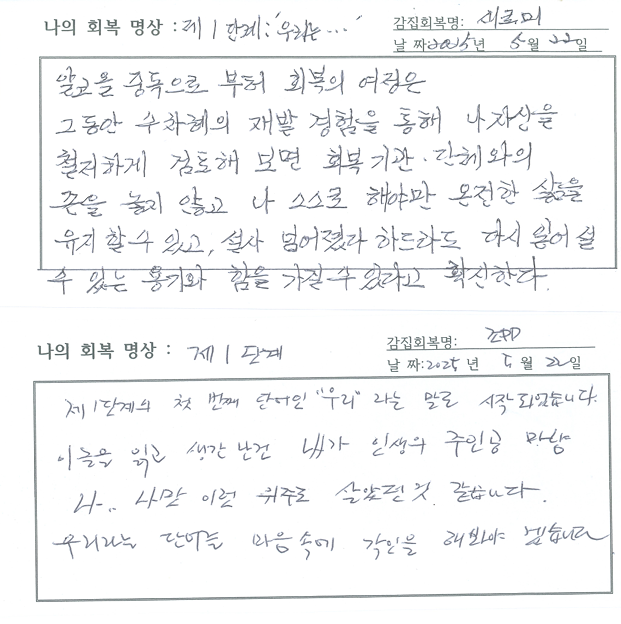 나의 회복 명상 : 제 1 단계: '우리는 ...'
감집회복명: 새로미
날 짜 2025년 5월 22일
알코올 중독으로 부터 회복의 여정은
그동안 수차례의 재발 경험을 통해 나 자신을
철저하게 검토해 보면 회복기관·단체와의
끈을 놓지 않고 나 스스로 해야만 온전한 삶을
유지할 수 있고, 설사 넘어졌다 하드라도 다시 일어설
수 있는 용기와 힘을 가질 수 있다고 확신한다.
나의 회복 명상 : 제 1 단계
감집회복명:
날 짜:2025년 5월 22일
제 1단계의 첫 번째 단어인 "우리"라는 말로 시작되었습니다.
이 글을 읽고 생각난건 내가 인생의 주인공 마냥
나.. 나만 이런 위주로 살았던것 같습니다.
우리라는 단어를 마음속에 각인을 해봐야 겠습니다